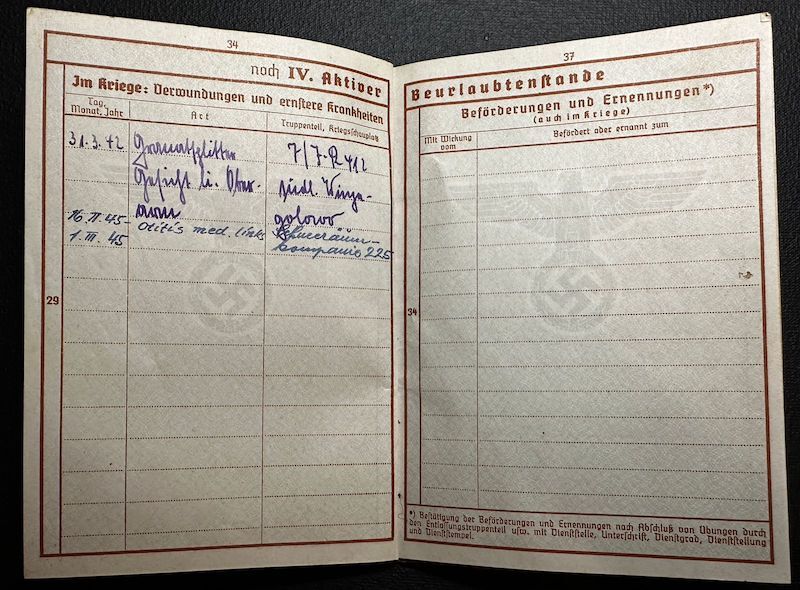 34
noch IV. Aktiver
Im Kriege: Verwundungen und ernstere Krankheiten
Tag, Monat, Jahr
Art
Truppenteil, Kriegsschauplatz
31.3.42 Granatsplitter 7/J.R 412
Gesicht li. Ober- südl. Winja-
arm golowo
16.II.45- Otitis med. links Schneeräum-
1.III.45 kompanie 225
29
37
Beurlaubtenstande
Beförderungen und Ernennungen*)
(auch im Kriege)
Mit Wirkung vom
Befördert oder ernannt zum
34
*) Bestätigung der Beförderungen und Ernennungen nach Abschluß von Übungen durch
den Entlassungstruppenteil usw. mit Dienststelle, Unterschrift, Dienstgrad, Dienststellung
und Dienststempel.